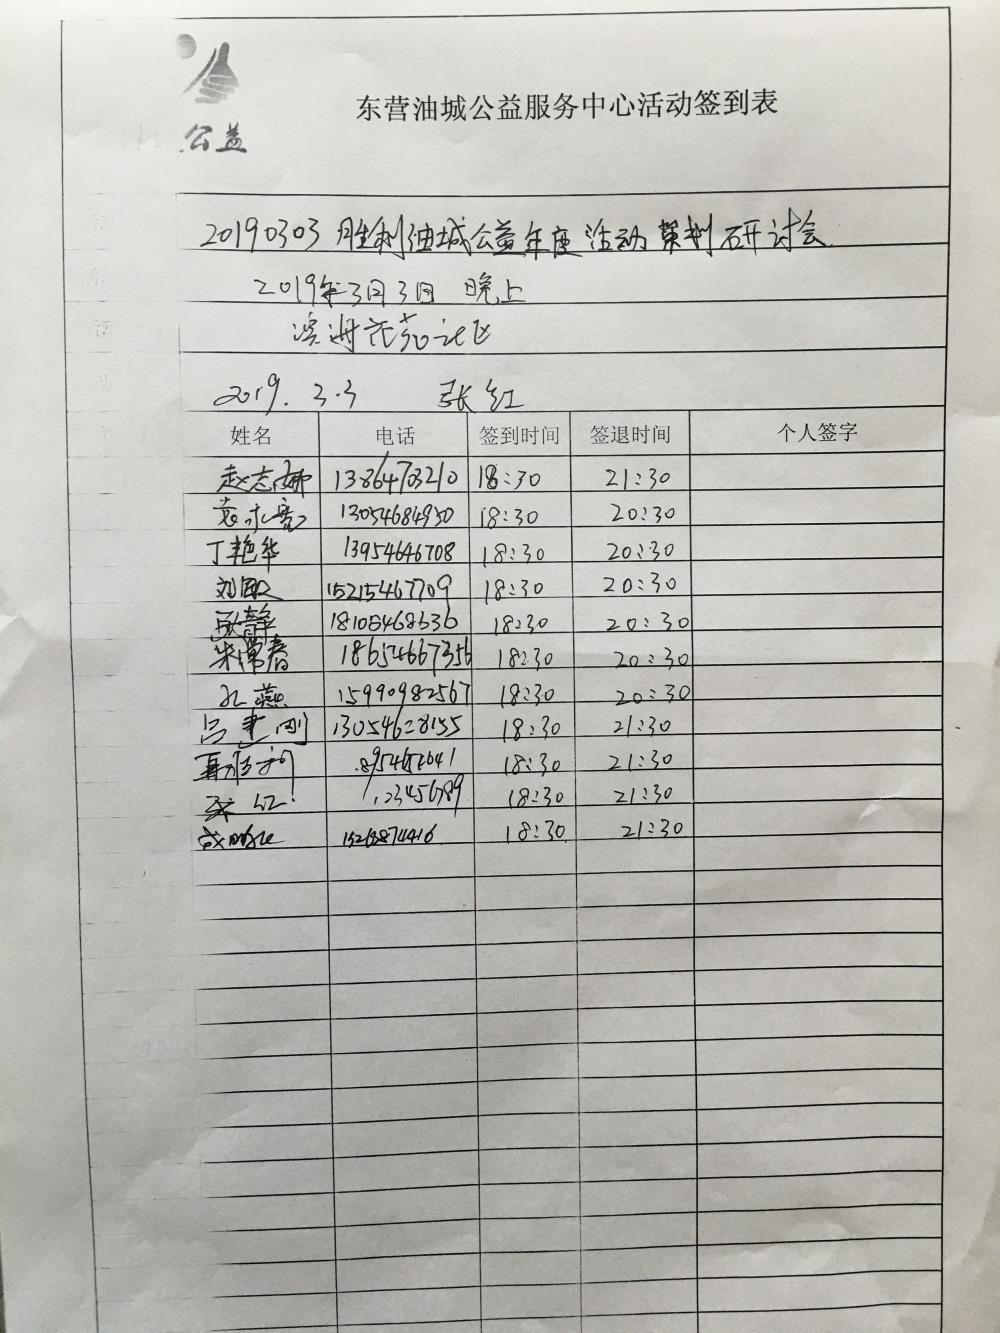 公益
东营油城公益服务中心活动签到表
20190303 胜利油城公益年度活动策划研讨会
2019年3月3日 晚上
滨州花苑社区
2019.3.3 张红
姓名 电话 签到时间 签退时间 个人签字
赵志娜 13864703210 18:30 21:30
袁永亮 13054684950 18:30 20:30
丁艳华 13954646708 18:30 20:30
刘敏 15215467709 18:30 20:30
静 18105468636 18:30 20:30
朱常春 18654667356 18:30 20:30
孔燕 15990982567 18:30 20:30
吕建刚 13054628155 18:30 21:30
18:30 21:30
123456789 18:30 21:30
15263874416 18:30 21:30